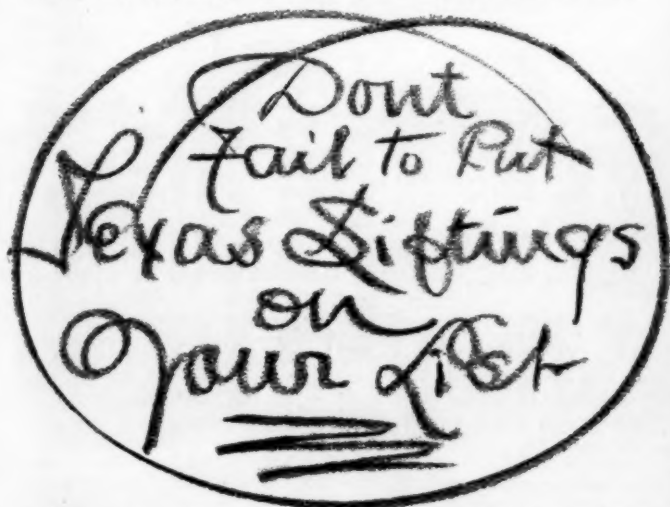 Dont
Fail to Put
Texas Siftings
on
Your List